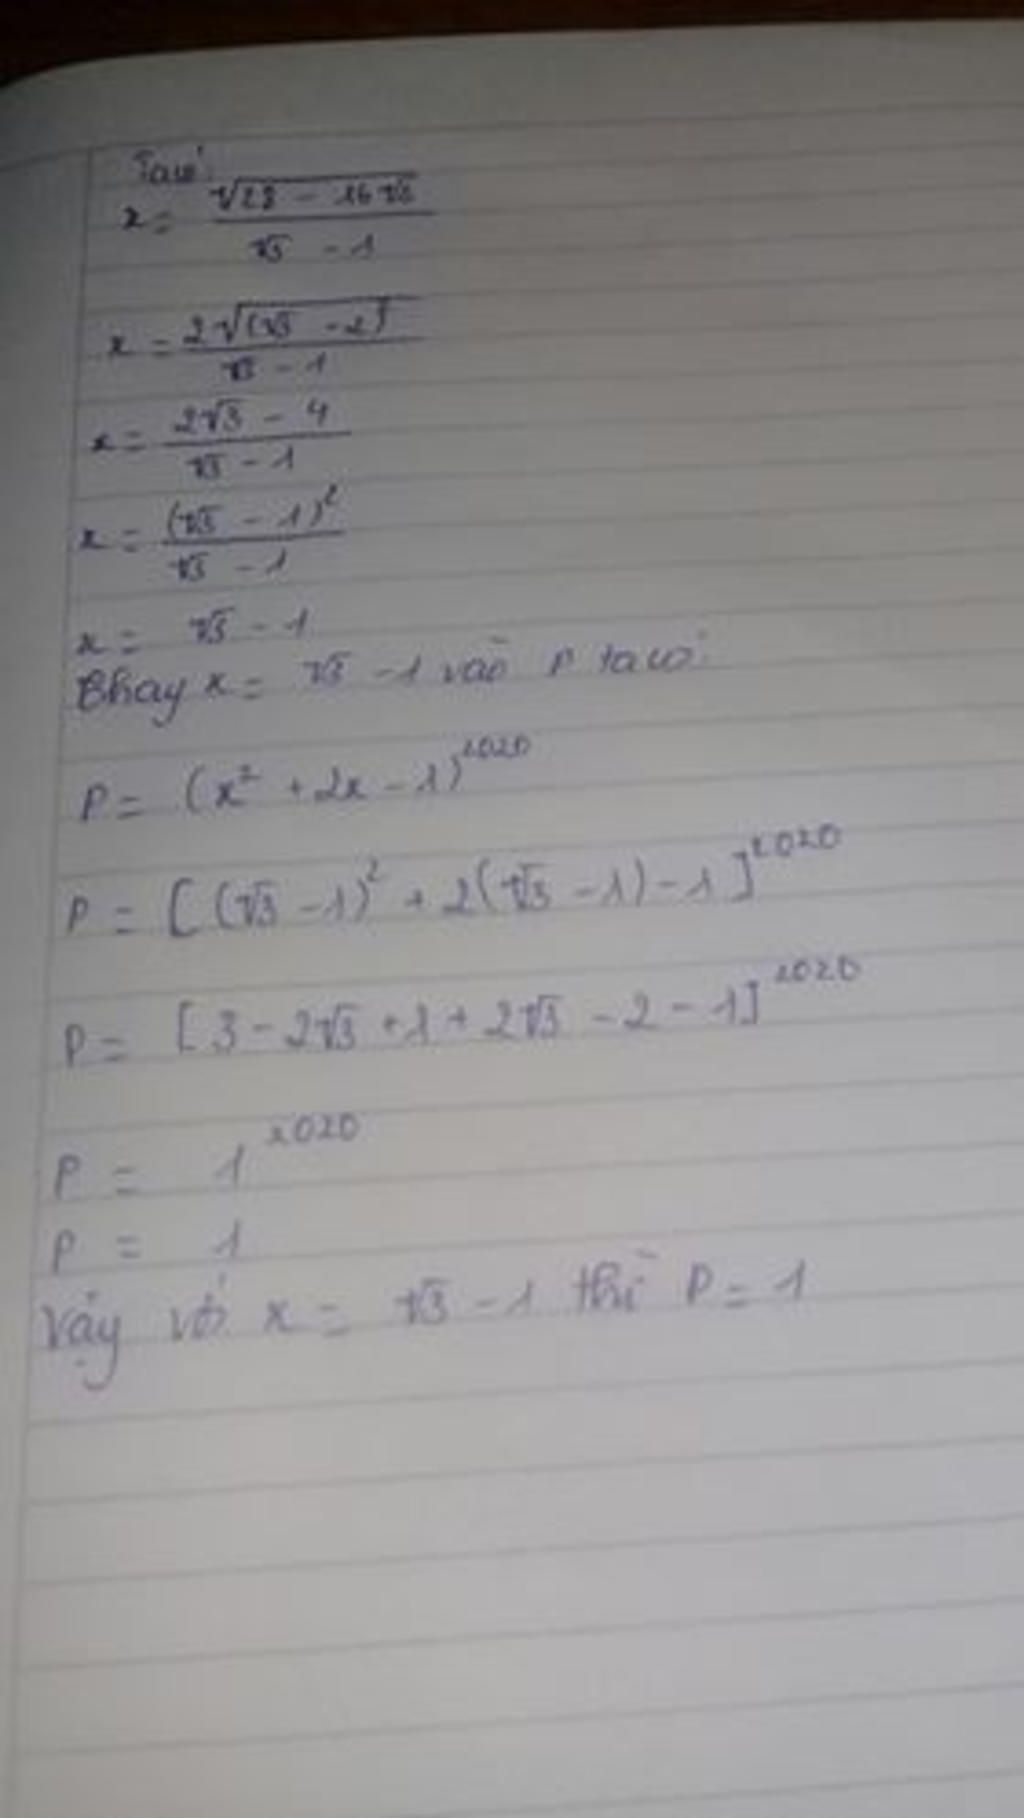 Ta có:
x = √(28 - 16√3) / (√3 - 1)
x = 2√(√3 - 2)² / (√3 - 1)
x = (2√3 - 4) / (√3 - 1)
x = (√3 - 1)² / (√3 - 1)
x = √3 - 1
Thay x = √3 - 1 vào P ta có:
P = (x² + 2x - 1)²⁰²⁰
P = [(√3 - 1)² + 2(√3 - 1) - 1]²⁰²⁰
P = [3 - 2√3 + 1 + 2√3 - 2 - 1]²⁰²⁰
P = 1²⁰²⁰
P = 1
Vậy với x = √3 - 1 thì P = 1